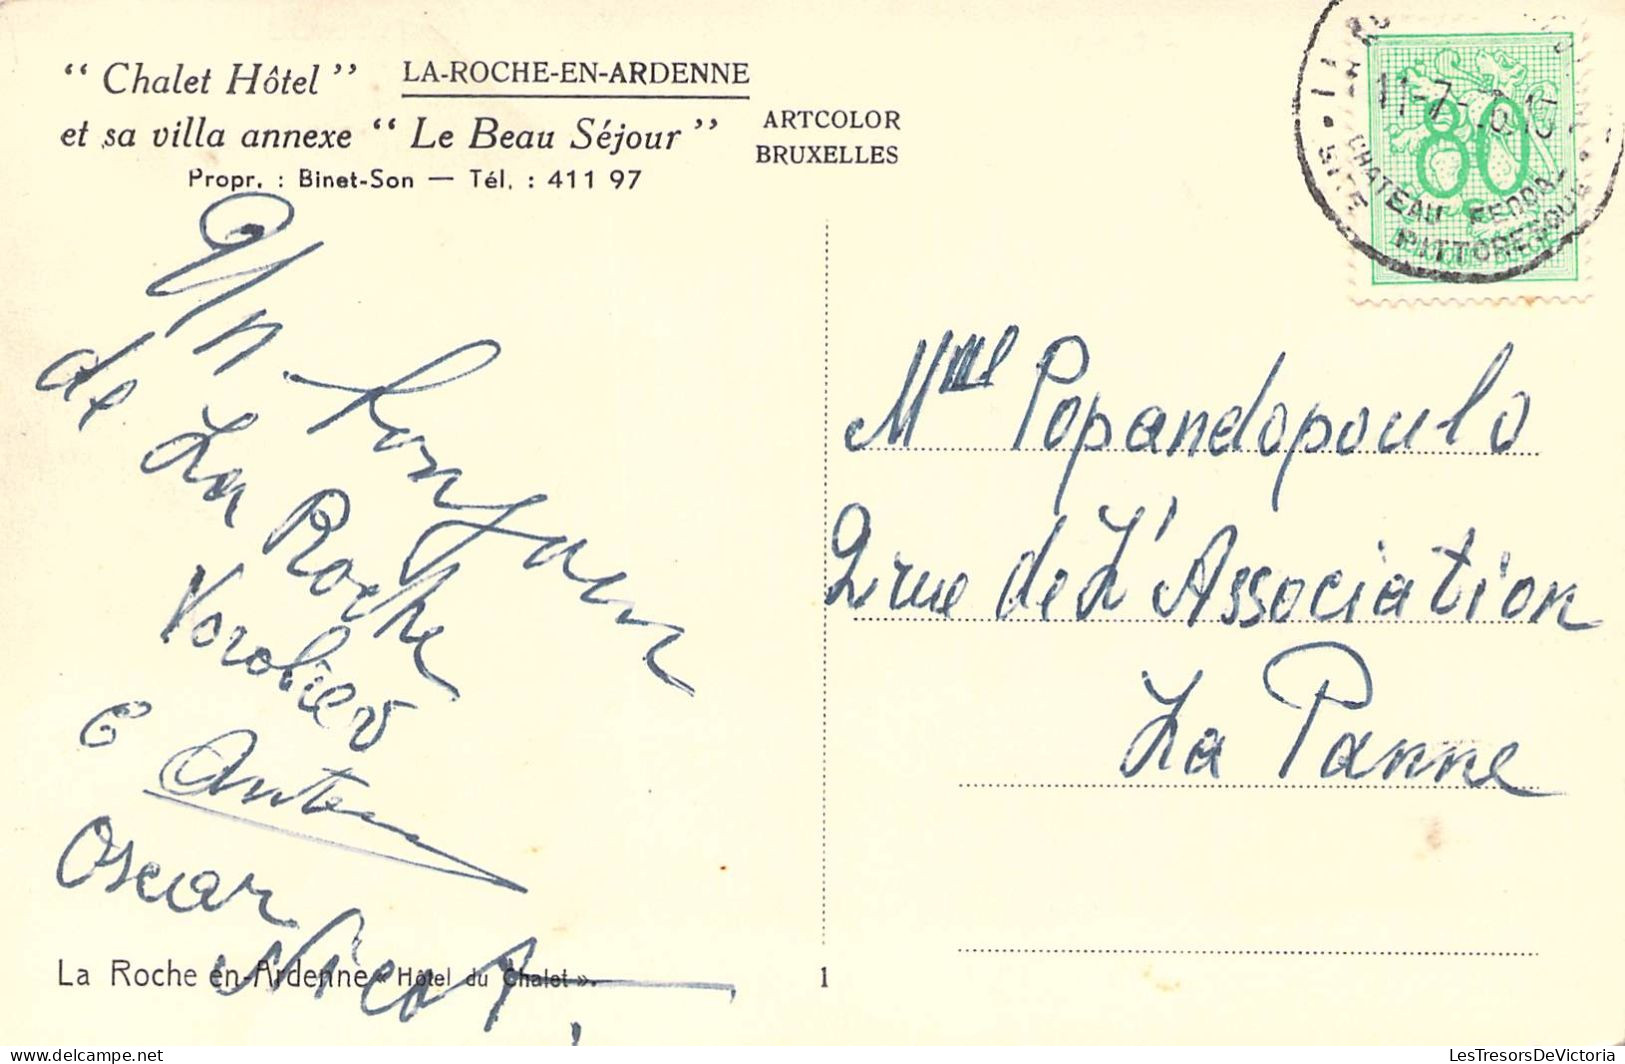 “ Chalet Hôtel ” LA-ROCHE-EN-ARDENNE
et sa villa annexe “ Le Beau Séjour ”
Propr. : Binet-Son — Tél. : 411 97
ARTCOLOR
BRUXELLES
11-7-
80
CHATEAU FEODAL
SITE PITTORESQUE
BELGIQUE BELGIE
Un bonjour
de La Roche
Oscar
La Roche en-Ardenne « Hôtel du Chalet ».
1
Mme Popandopoulo
2 rue de L'Association
La Panne
delcampe.net
LesTresorsDeVictoria